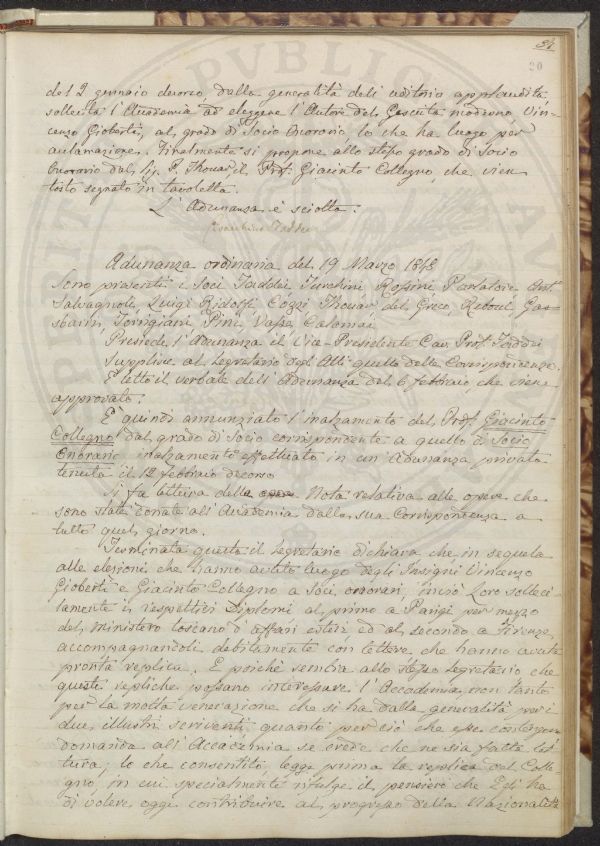 84
20
del 2 gennaio decorso dalla generalità dell'uditorio applaudita
sollecita l'Accademia ad eleggere l'Autore del Gesuita moderno, Vin-
cenzo Gioberti, al grado di Socio Onorario, lo che ha luogo per
acclamazione. Finalmente si propone allo stesso grado di Socio
Onorario dal Sig. P. Thouar il Prof. Giacinto Collegno, che vien
tosto segnato in tavoletta.
L'Adunanza è sciolta.
Gioacchino Taddei
Adunanza ordinaria del 19 Marzo 1848
Sono presenti i Soci Taddei Turchini Rosini Parlatore Ant.
Salvagnoli, Luigi Ridolfi Cozzi Thouar del Greco, Reboul, Gas-
barrini, Torrigiani, Pini, Vassa, Calamai
Presiede l'Adunanza il Vice-Presidente Cav. Prof. Taddei
Supplisce al Segretario degli Atti quello delle Corrispondenze.
È letto il verbale dell'Adunanza del 6 febbraio, che viene
approvato.
È quindi annunziato l'inalzamento del Prof. Giacinto
Collegno dal grado di Socio corrispondente a quello di Socio
Onorario inalzamento effettuato in un'Adunanza privata
tenuta il 12 febbraio decorso
Si fa lettura della Nota relativa alle opere che
sono state donate all'Accademia dalla sua Corrispondenza a
tutto quel giorno.
Terminata questa il Segretario dichiara che in seguela
alle elezioni che hanno avuto luogo degli Insigni Vincenzo
Gioberti e Giacinto Collegno a Soci onorari, inviò Loro solleci-
tamente i respettivi Diplomi al primo a Parigi per mezzo
del ministero toscano d'affari esteri ed al secondo a Firenze,
accompagnandoli debitamente con lettere che hanno avuta
pronta replica. E poiché sembra allo stesso Segretario che
queste repliche possano interessare l'Accademia, non tanto
per la molta venerazione che si ha dalla generalità per i
due illustri scriventi, quanto per ciò che esse contengono
domanda all'Accademia se crede che ne sia fatta let
tura; lo che consentito, legge prima la replica del Colle
gno, in cui specialmente rifulge il pensiero che Egli ha
di volere oggi contribuire al progresso della Nazionalità